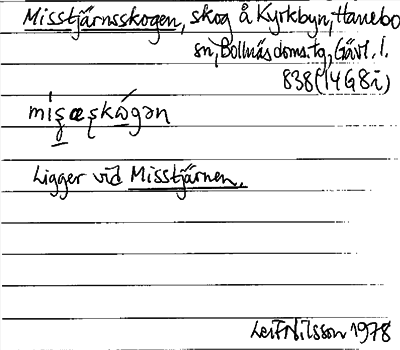 Misstjärnsskogen, skog å Kyrkbyn, Hanebo
sn, Bollnäs doms.tg, Gävl. l.
838 (14G8i)
Ligger vid Misstjärnen.
Leif Nilsson 1978